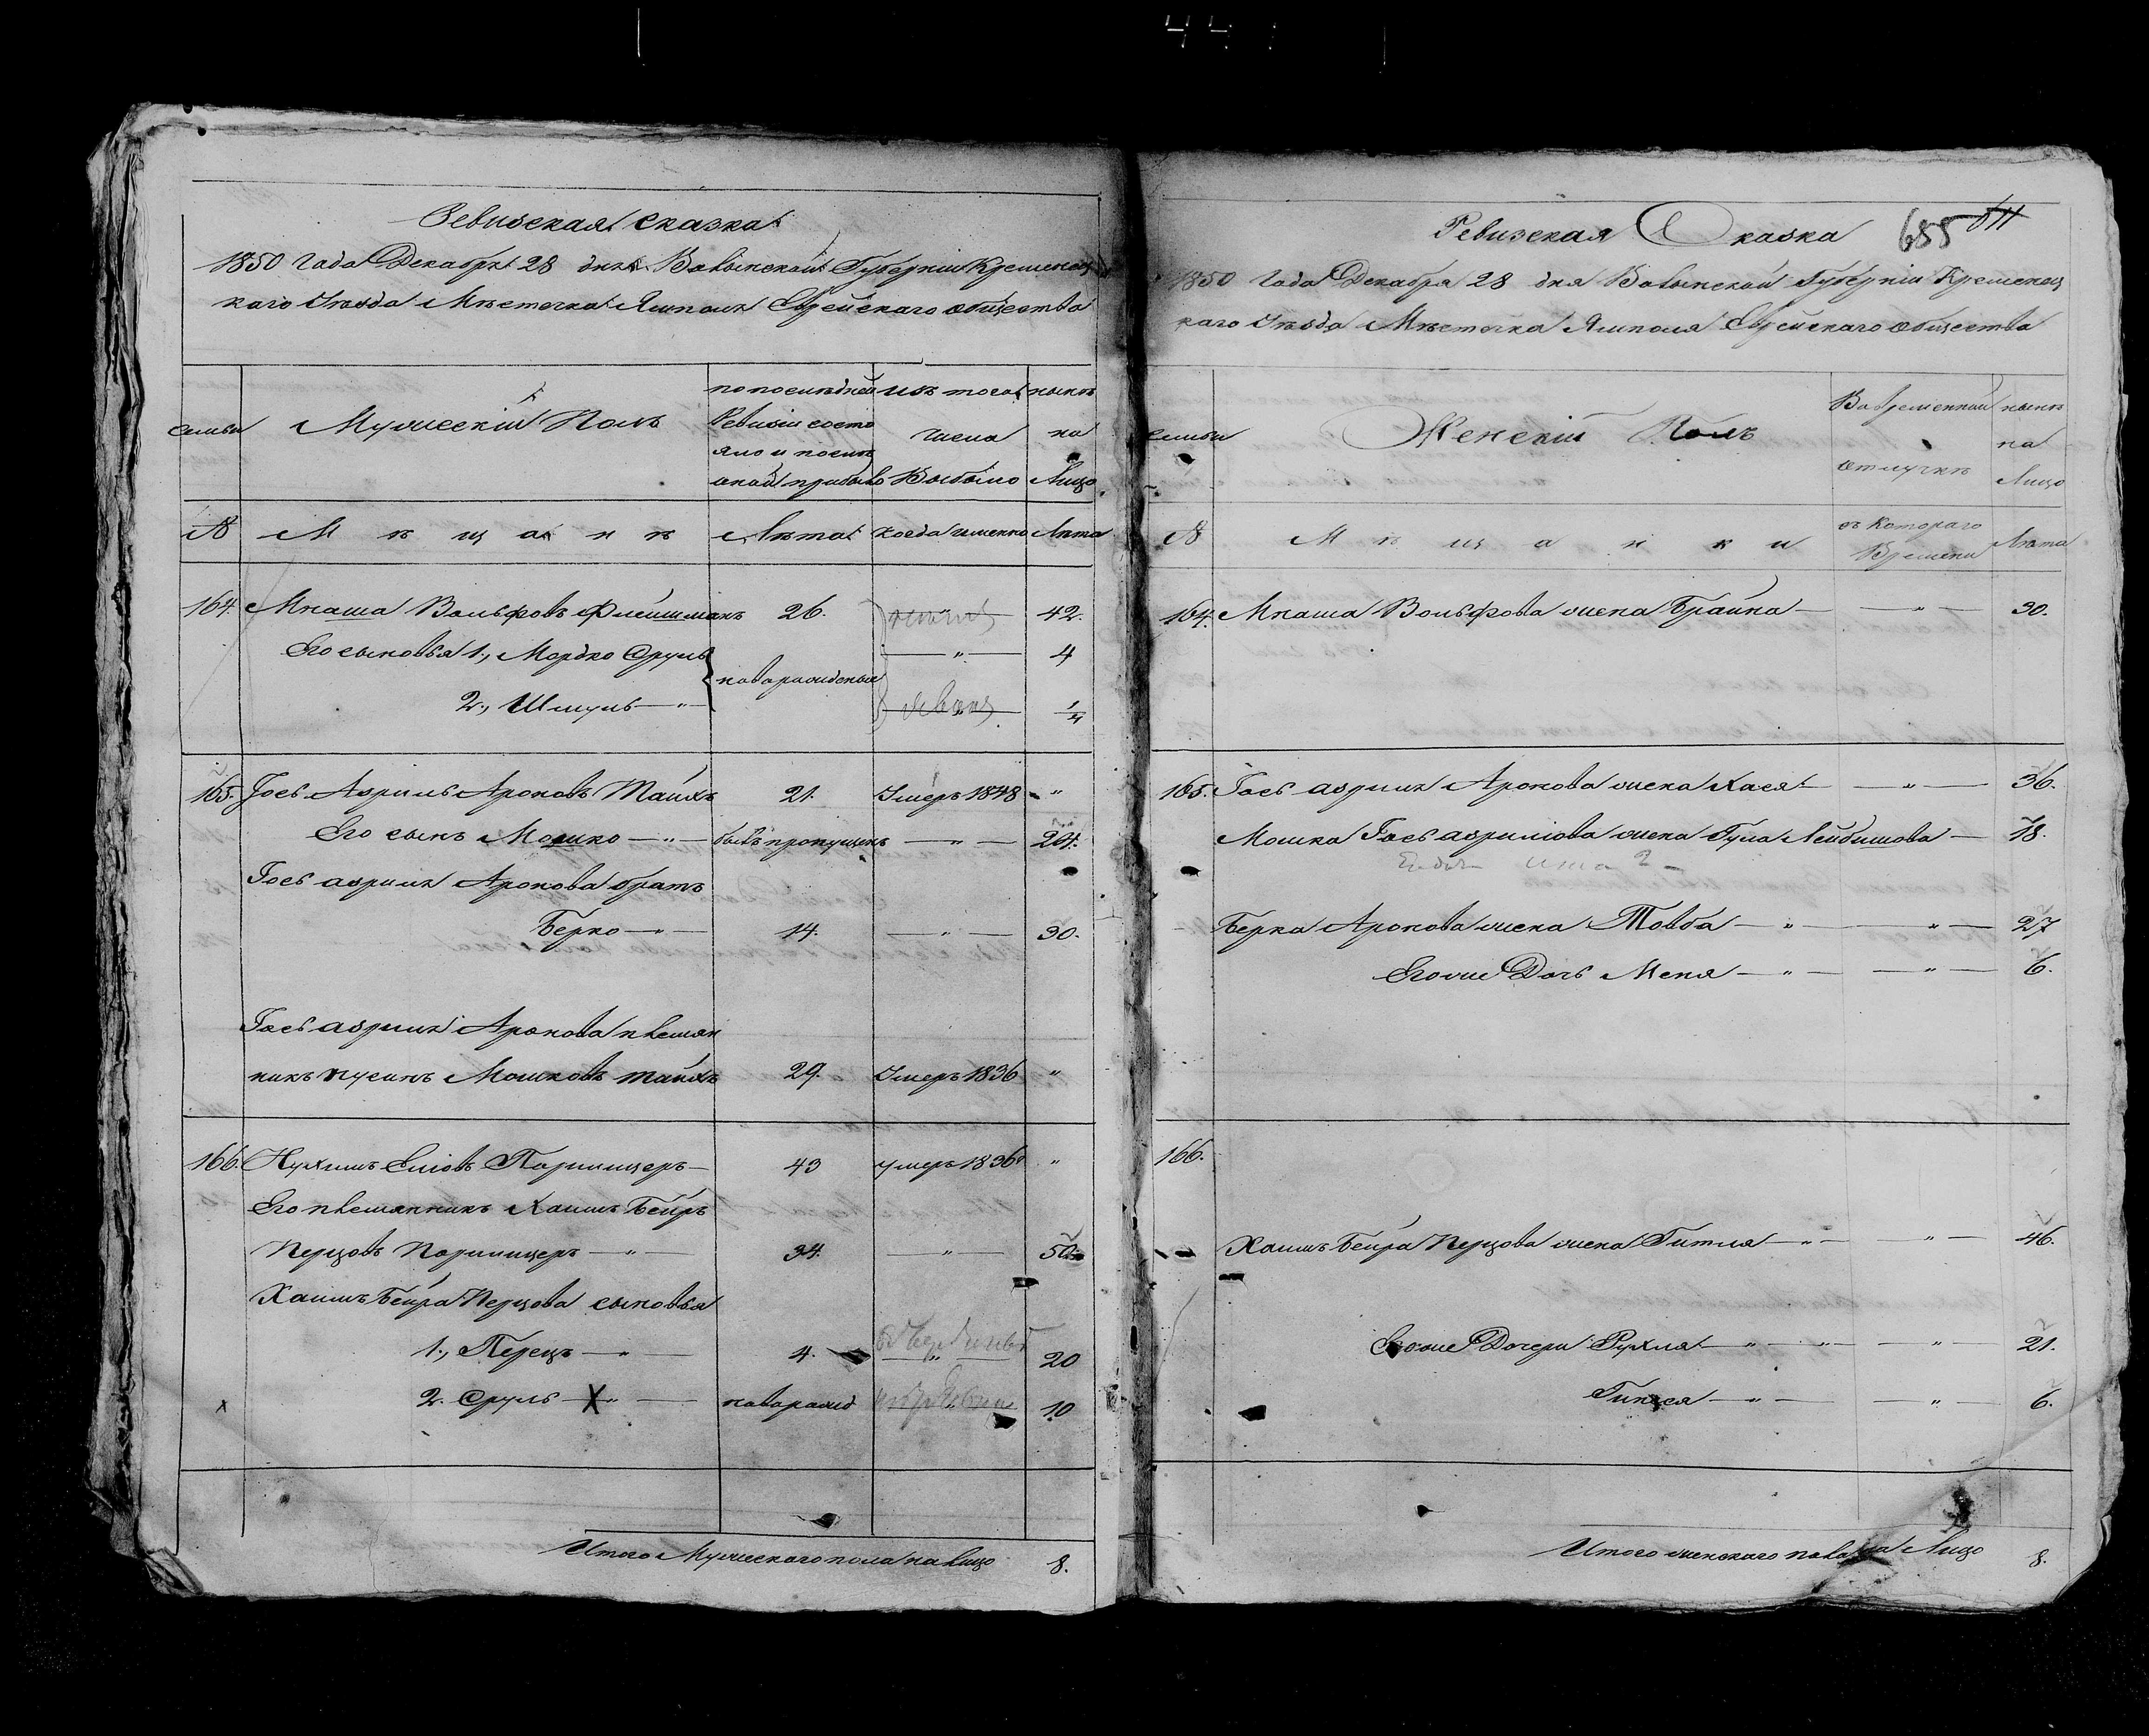 Ревизская сказка
1850 Года Декабря 28 дня Волынской Губерніи Кременец
каго Уѣзда Мѣстечка Ямполя Еврейскаго общества
семьи
Мужескій Полъ
по последней
Ревизіи состо
яло и после
оной прибыло
изъ того
числа
Выбыло
нынѣ
на
Лицо
№
М ѣ щ а н ѣ
Лѣта
когда именно
Лѣта
164. Мнаша Вольфовъ Флейшманъ 26. 42.
Его сыновья 1., Мордко Сруль 4
новорожденые
2., Шмуль — " — 1/4
165. Гось Азриль Ароновъ Тайхъ 21. Умеръ 1848 "
Его сынъ Мошко — " — былъ пропущенъ — " — 24.
Гось Азриля Аронова братъ
Берко — " — 14. — " — 30.
Гось Азриля Аронова племян
никъ Нусинъ Мошковъ Тайхъ 29. Умеръ 1836 "
166. Нухимъ Еліовъ Парницеръ — 43 умеръ 1836 "
Его племянникъ Хаимъ Бейръ
Перцовъ Парницеръ — " — 34. — " — 50
Хаимъ Бейра Перцова сыновья
1., Перецъ — " — 4. — " — 20
2. Сруль — X " — новорожд 10
Итого Мужескаго пола на лицо 8.
Ревизская Сказка 655
1850 Года Декабря 28 дня Волынской Губерніи Кременец
каго Уѣзда Мѣстечка Ямполя Еврейскаго общества
семьи
Женскій Полъ
Во временной
отлучкѣ
нынѣ
на
Лицо
№
М ѣ щ а н к и
съ котораго
Времени
Лѣта
164. Мнаша Вольфова жена Брайна — — " — 30.
165. Гось Азриля Аронова жена Хася — — " — 36.
Мошка Гось Азриліова жена Гула Лейбишова — 18.
Берка Аронова жена Товба — " — — " — 27
Егоже Дочь Меня — " — — " — 6.
166.
Хаимъ Бейра Перцова жена Гитля — " — " — 46.
Егоже Дочери Рухля — " — " — — " — 21.
Гинся — " — — " — 6.
Итого женскаго пола на Лицо 8.